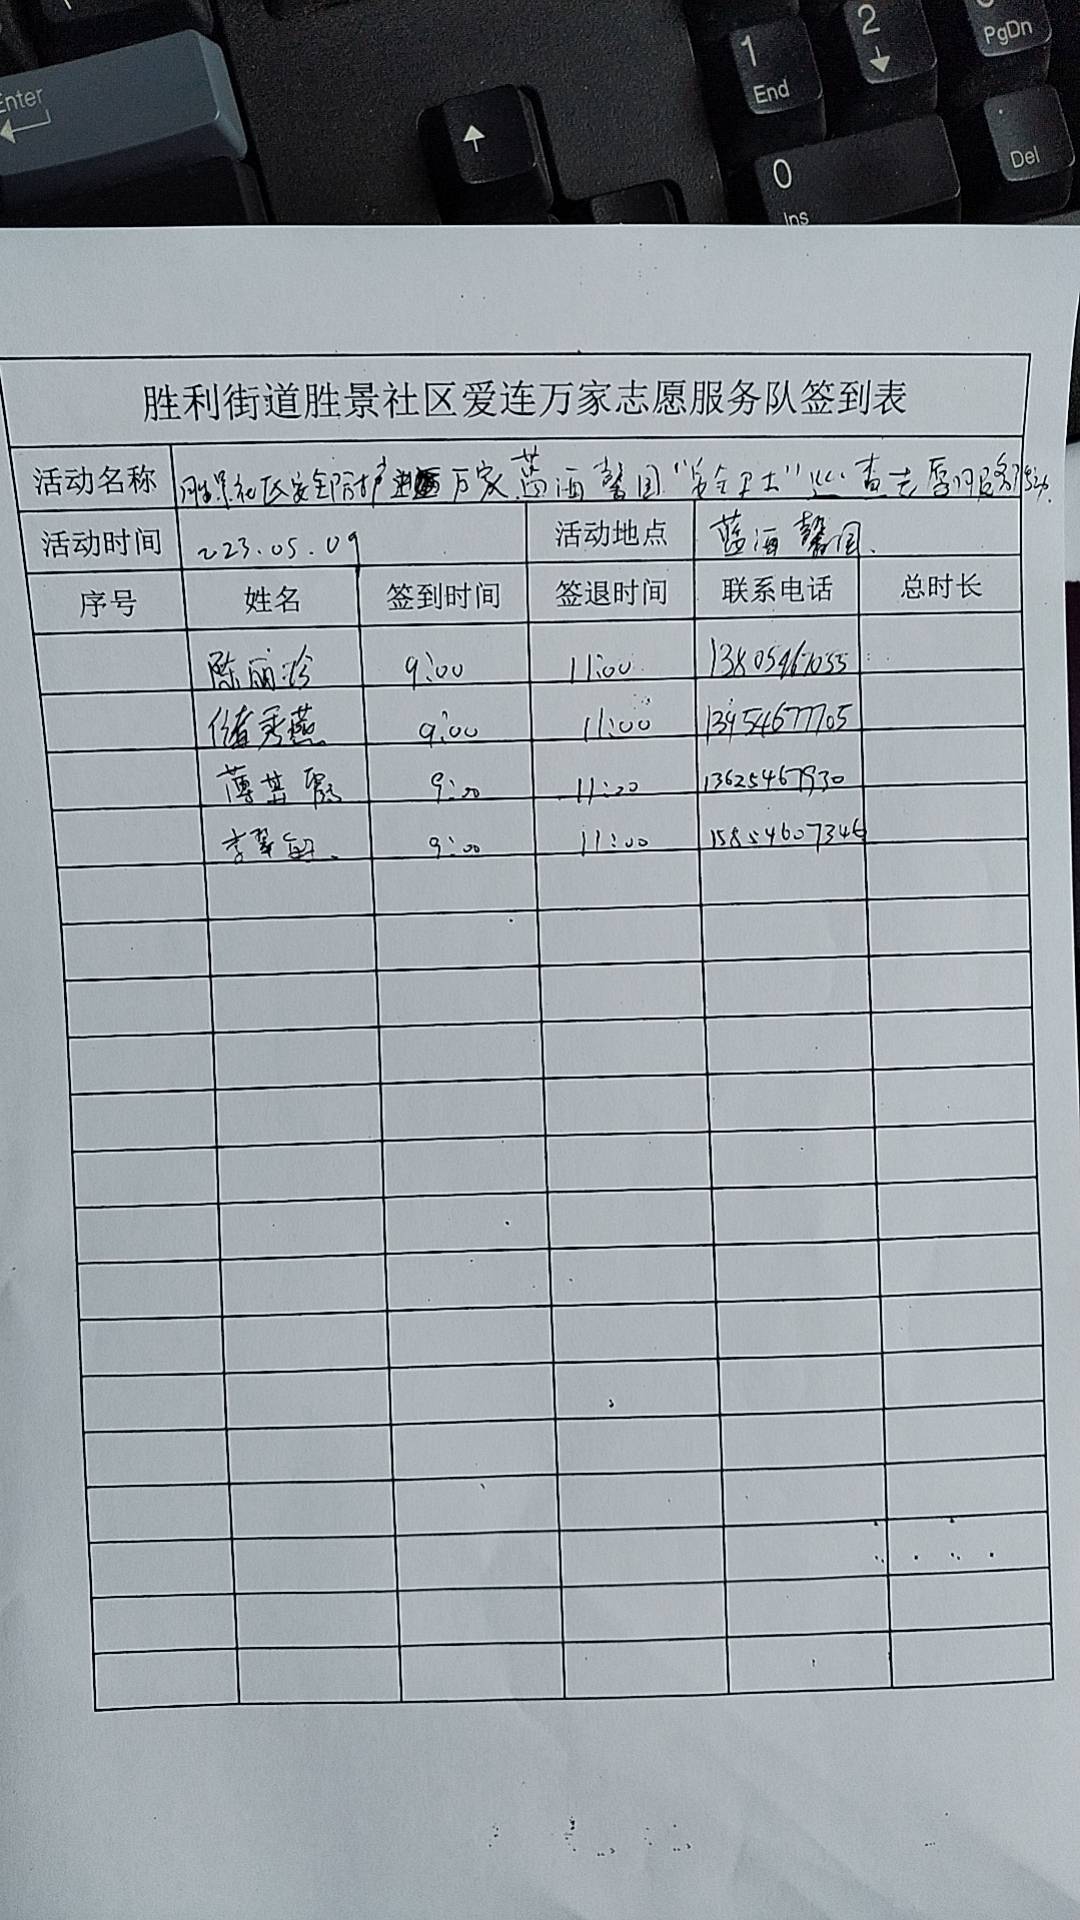 Enter
1
End
2
PgDn
0
Ins
Del
胜利街道胜景社区爱连万家志愿服务队签到表
活动名称 胜景社区安全防护进万家蓝海馨园"安全卫士"巡查志愿服务活动
活动时间 223.05.09 活动地点 蓝海馨园.
序号 姓名 签到时间 签退时间 联系电话 总时长
陈丽珍 9:00 11:00 13805467055
秀燕 9:00 11:00 13954677705
薄 9:00 11:00 13625467930
李翠 9:00 11:00 15854607346